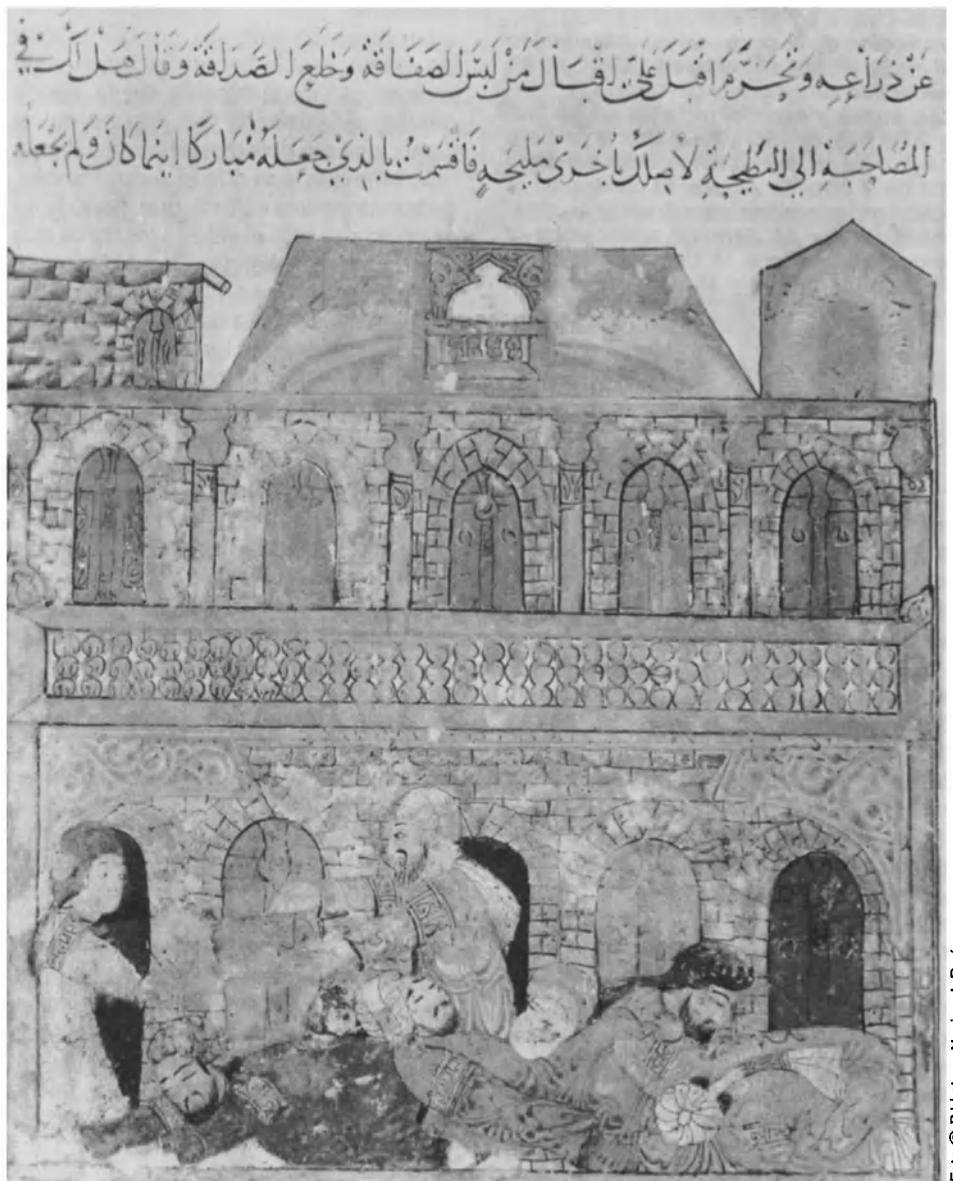 عن ذراعه وتحرم اقبل على اقبال من لبس الصفاقة وخلع الصداقة وقال هل لك في
المصاحبة الى البطيحة لاصلك باخرى مليحه فاقسمت بالذي جعله مباركا اينما كان ولم يجعله
Foto: ©